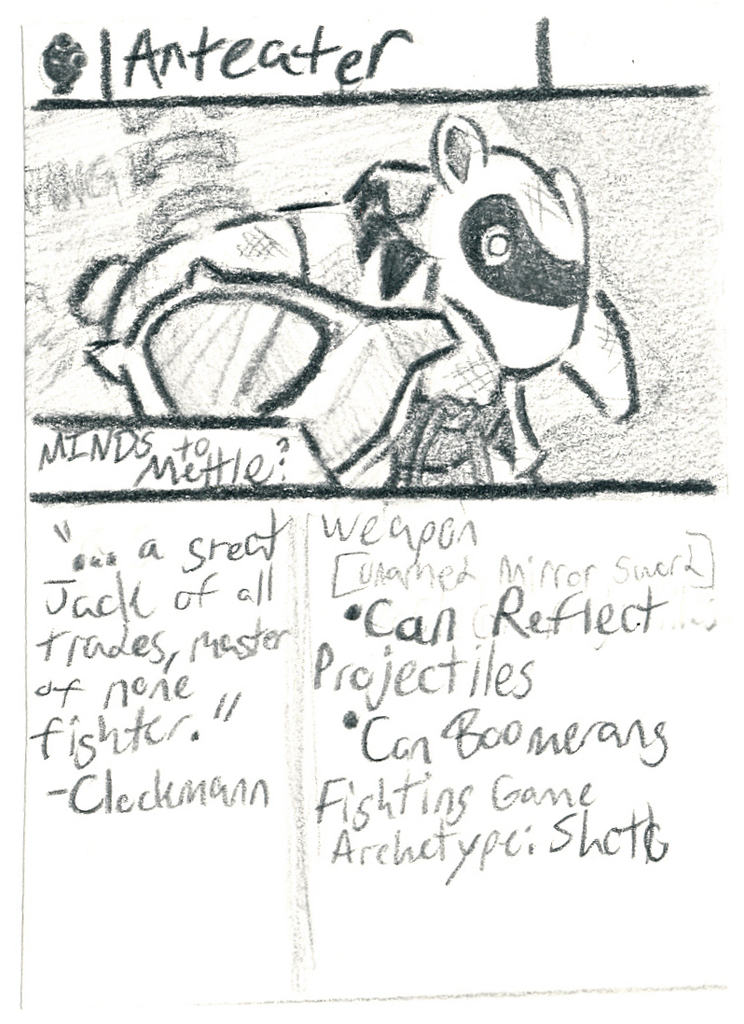 Anteater
MINDS to
Mettle?
"... a great
Jack of all
trades, master
of none
fighter."
-Cleckmann
Weapon
[Unamed Mirror Sword]
•Can Reflect
Projectiles
•Can Boomerang
Fighting Game
Archetype: Shoto